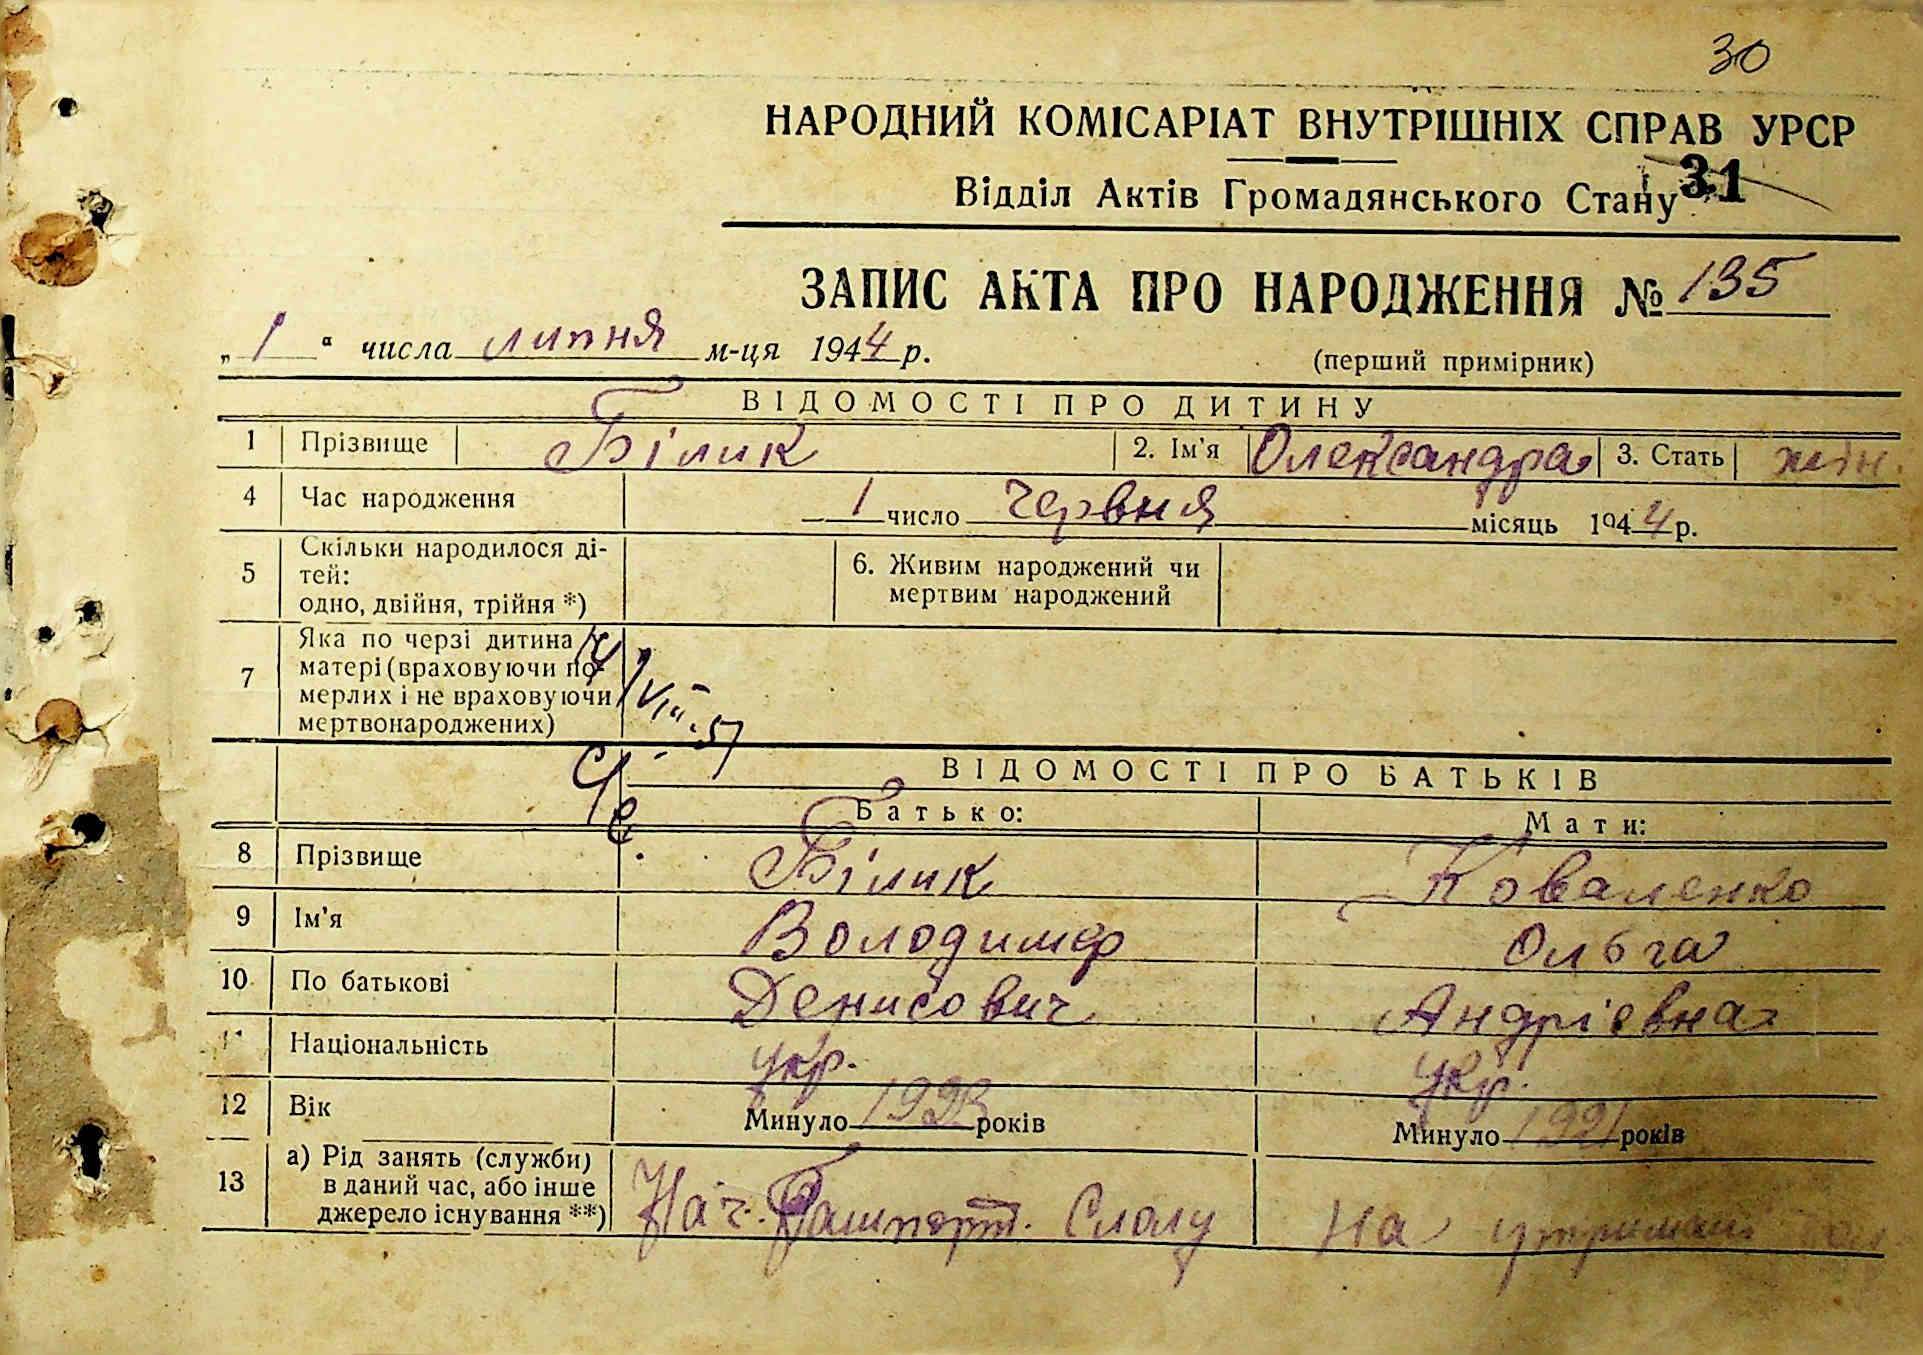 30
НАРОДНИЙ КОМІСАРІАТ ВНУТРІШНІХ СПРАВ УРСР
Відділ Актів Громадянського Стану 31
ЗАПИС АКТА ПРО НАРОДЖЕННЯ № 135
„1“ числа липня м-ця 1944 р. (перший примірник)
ВІДОМОСТІ ПРО ДИТИНУ
1 Прізвище Білик 2. Ім'я Олександра 3. Стать жін.
4 Час народження 1 число червня місяць 1944 р.
5 Скільки народилося ді-
тей:
одно, двійня, трійня *)
6. Живим народжений чи
мертвим народжений
7 Яка по черзі дитина у
матері (враховуючи по-
мерлих і не враховуючи
мертвонароджених)
VIII-51
ВІДОМОСТІ ПРО БАТЬКІВ
Батько: Мати:
8 Прізвище Білик Коваленко
9 Ім'я Володимир Ольга
10 По батькові Денисович Андріївна
11 Національність укр. укр.
12 Вік Минуло 1923 років Минуло 1921 років
13 а) Рід занять (служби)
в даний час, або інше
джерело існування **)
Нач. Паспорт. Столу На утриманні